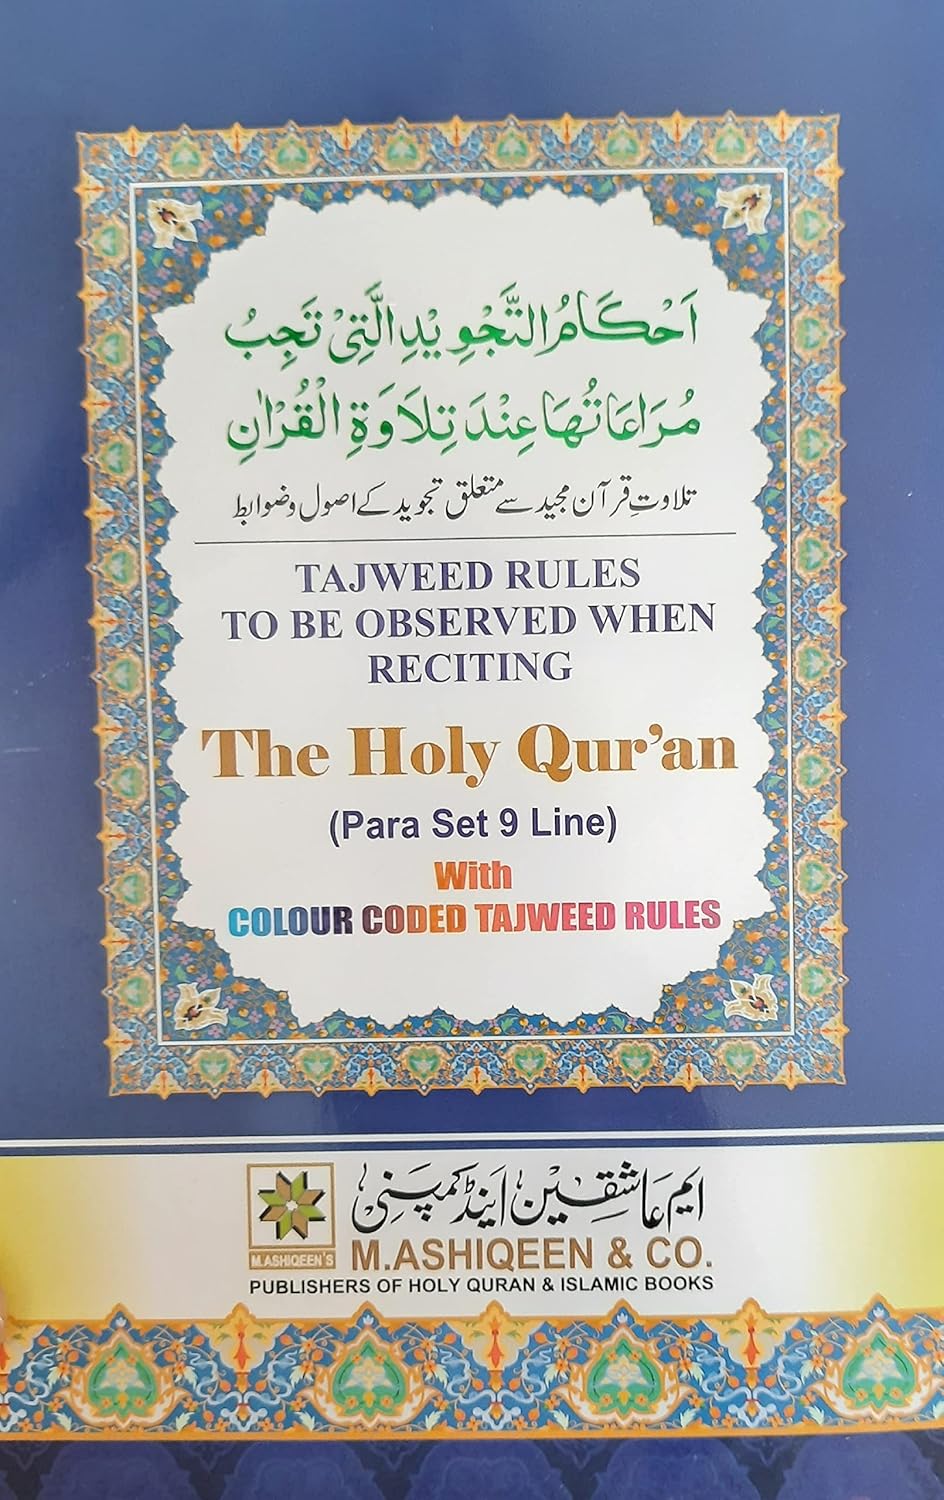 اَحْكَامُ التَّجْوِيْدِ الَّتِيْ تَجِبُ
مُرَاعَاتُهَا عِنْدَ تِلَاوَةِ الْقُرْاٰنِ
تلاوتِ قرآن مجید سے متعلق تجوید کے اصول و ضوابط
TAJWEED RULES
TO BE OBSERVED WHEN
RECITING
The Holy Qur'an
(Para Set 9 Line)
With
COLOUR CODED TAJWEED RULES
ایم عاشقین اینڈ کمپنی
M.ASHIQEEN'S
M.ASHIQEEN & CO.
PUBLISHERS OF HOLY QURAN & ISLAMIC BOOKS